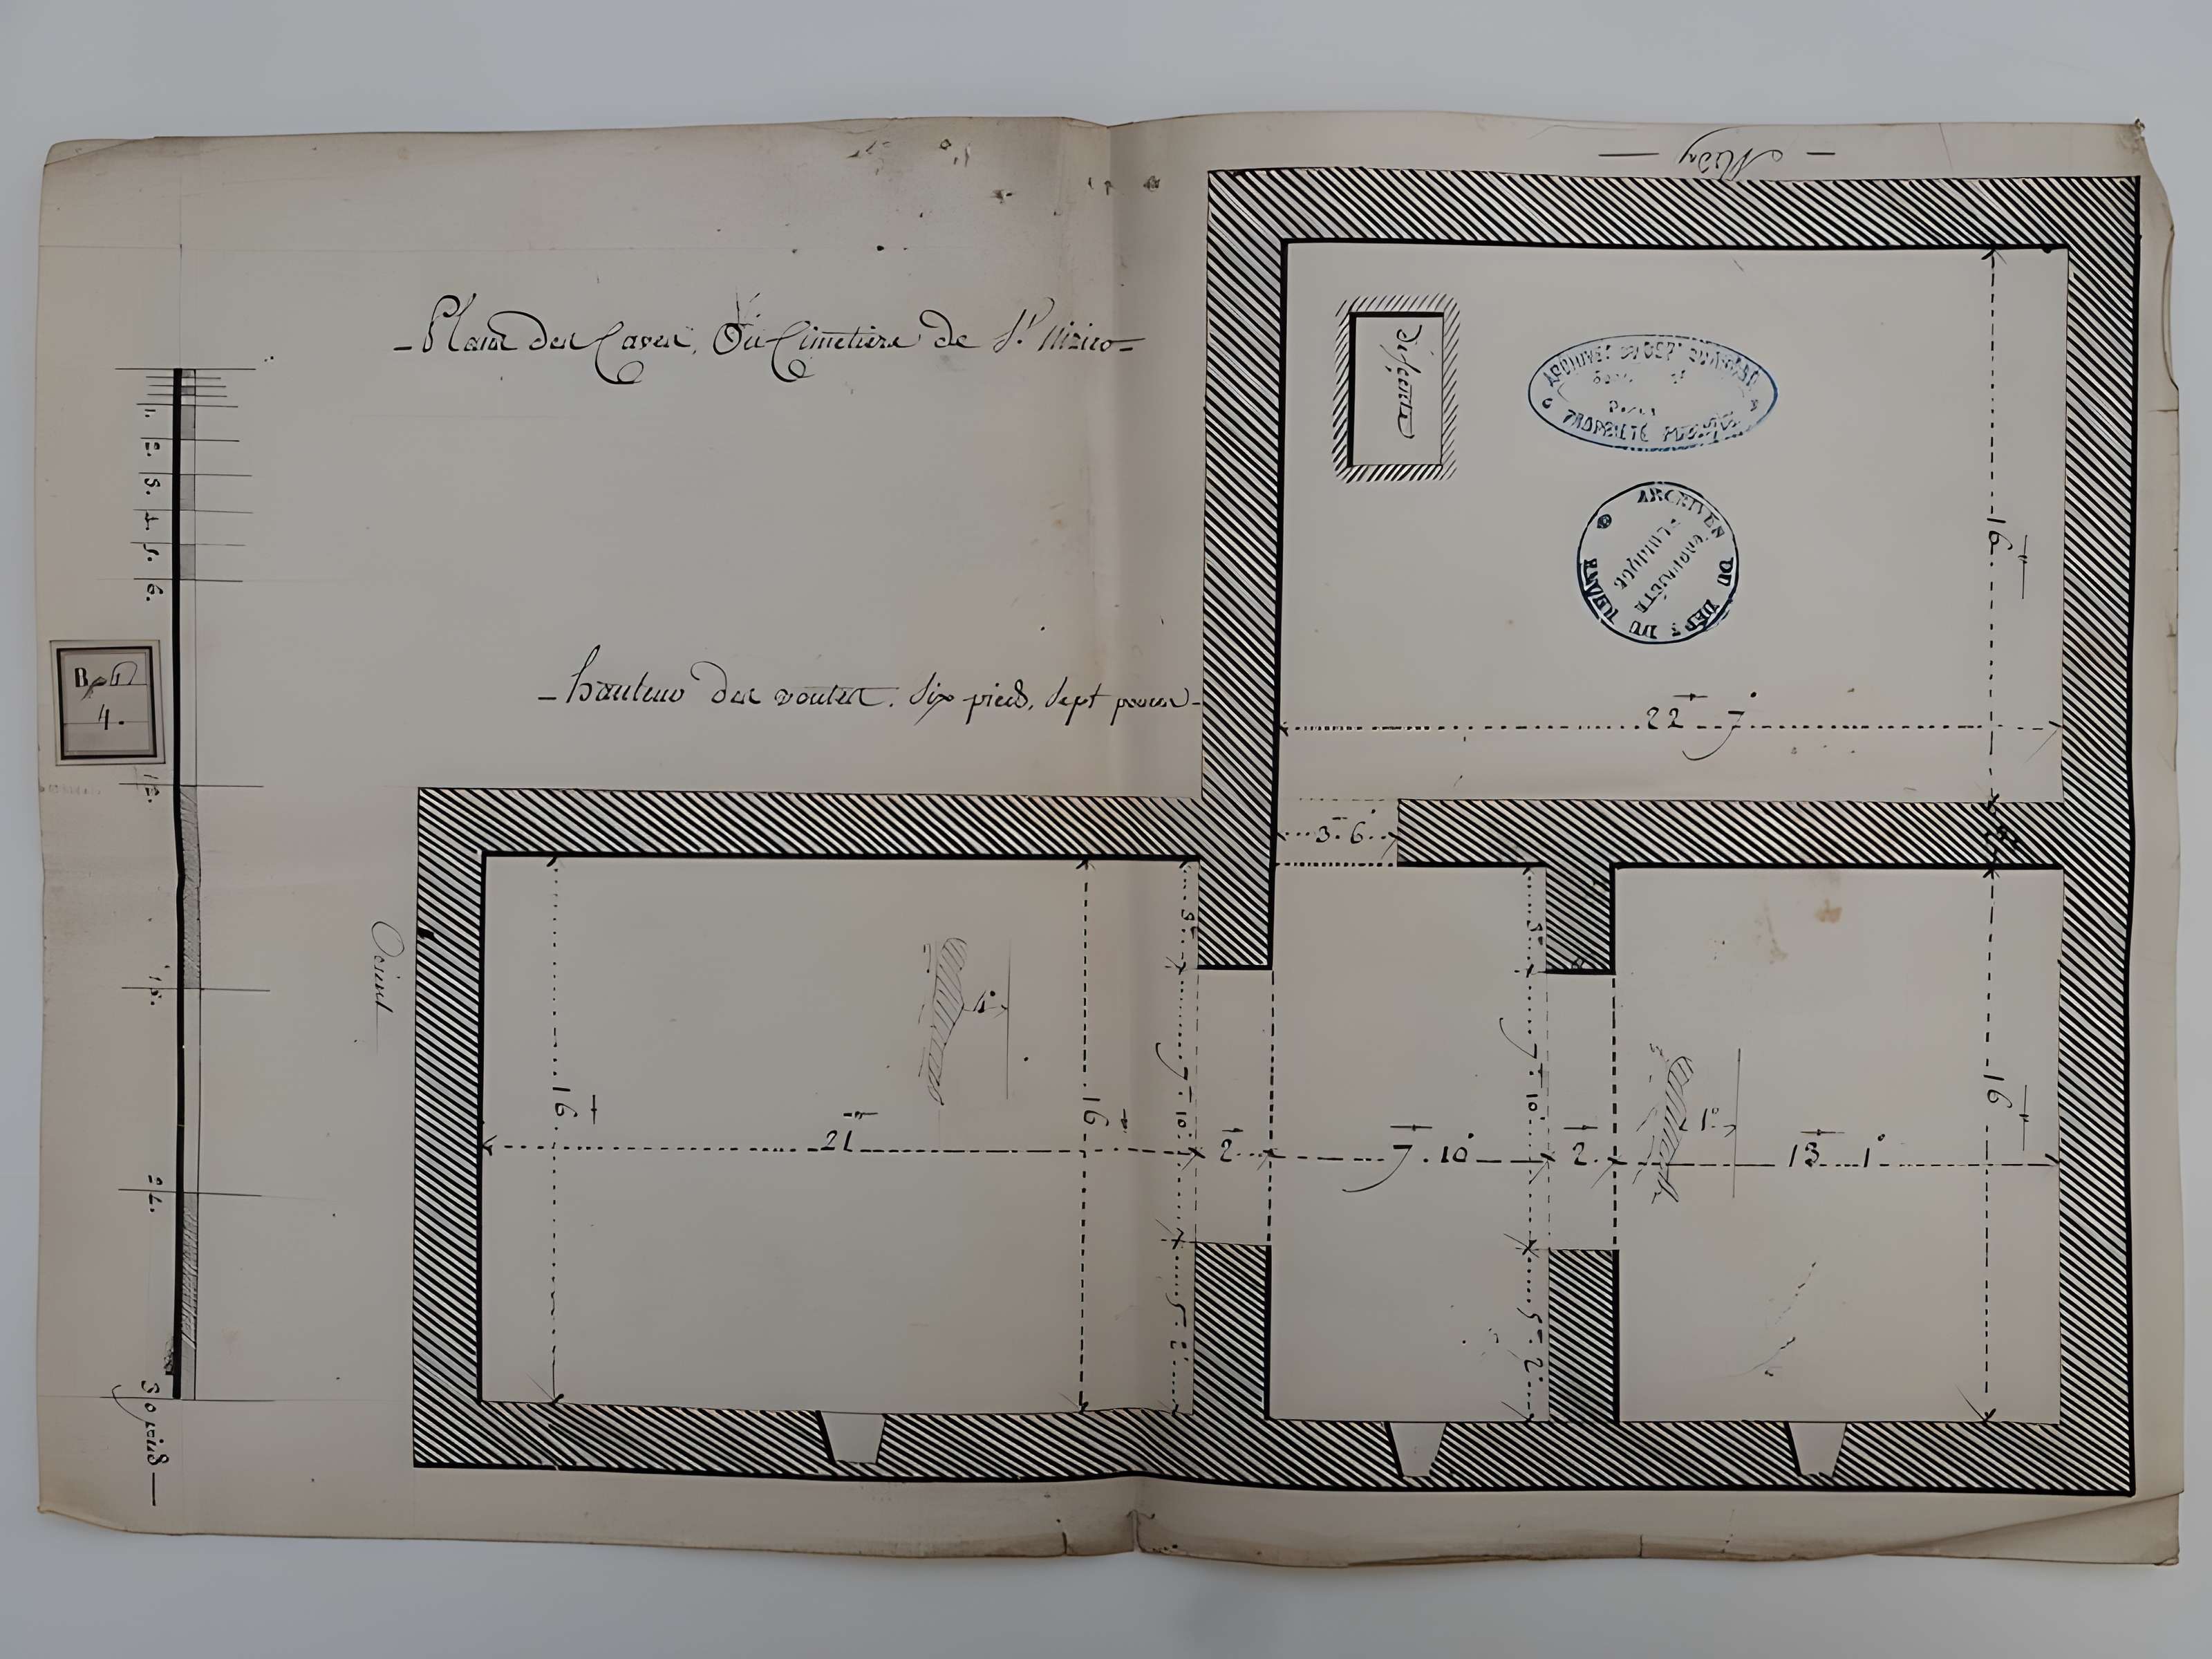 Midy
Plan des Caves, Ou Cimetiere de St. Nizier
Descente
ARCHIVES DU DEPT DU RHONE
PROPRIÉTÉ PUBLIQUE
ARCHIVES DU DEPT DU RHONE
PROPRIÉTÉ PUBLIQUE
16
hauteur des voutes. Six pieds, Sept pouces
22 7
1. 2. 3. 4. 5. 6.
B
4.
12.
3. 6
2
8
8
Orient
18.
4
7. 10
7. 10
16
16
16
21
2
7. 10
2
1
13 1
24.
5. 2
5. 2
30 pieds